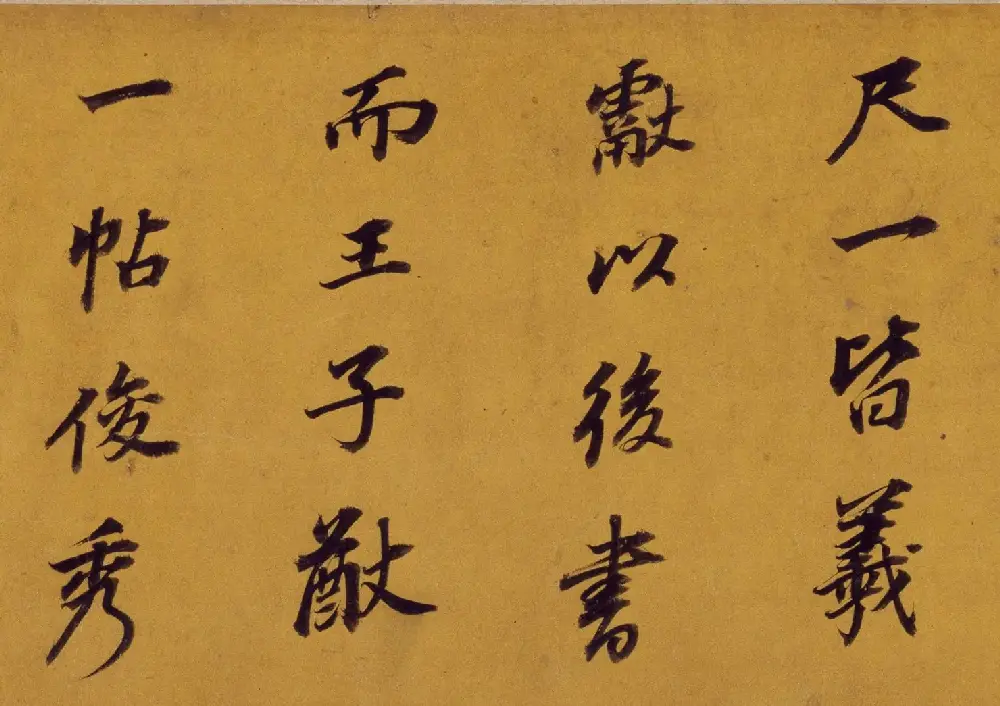 尺一皆羲
獻以後書
而王子猷
一帖俊秀